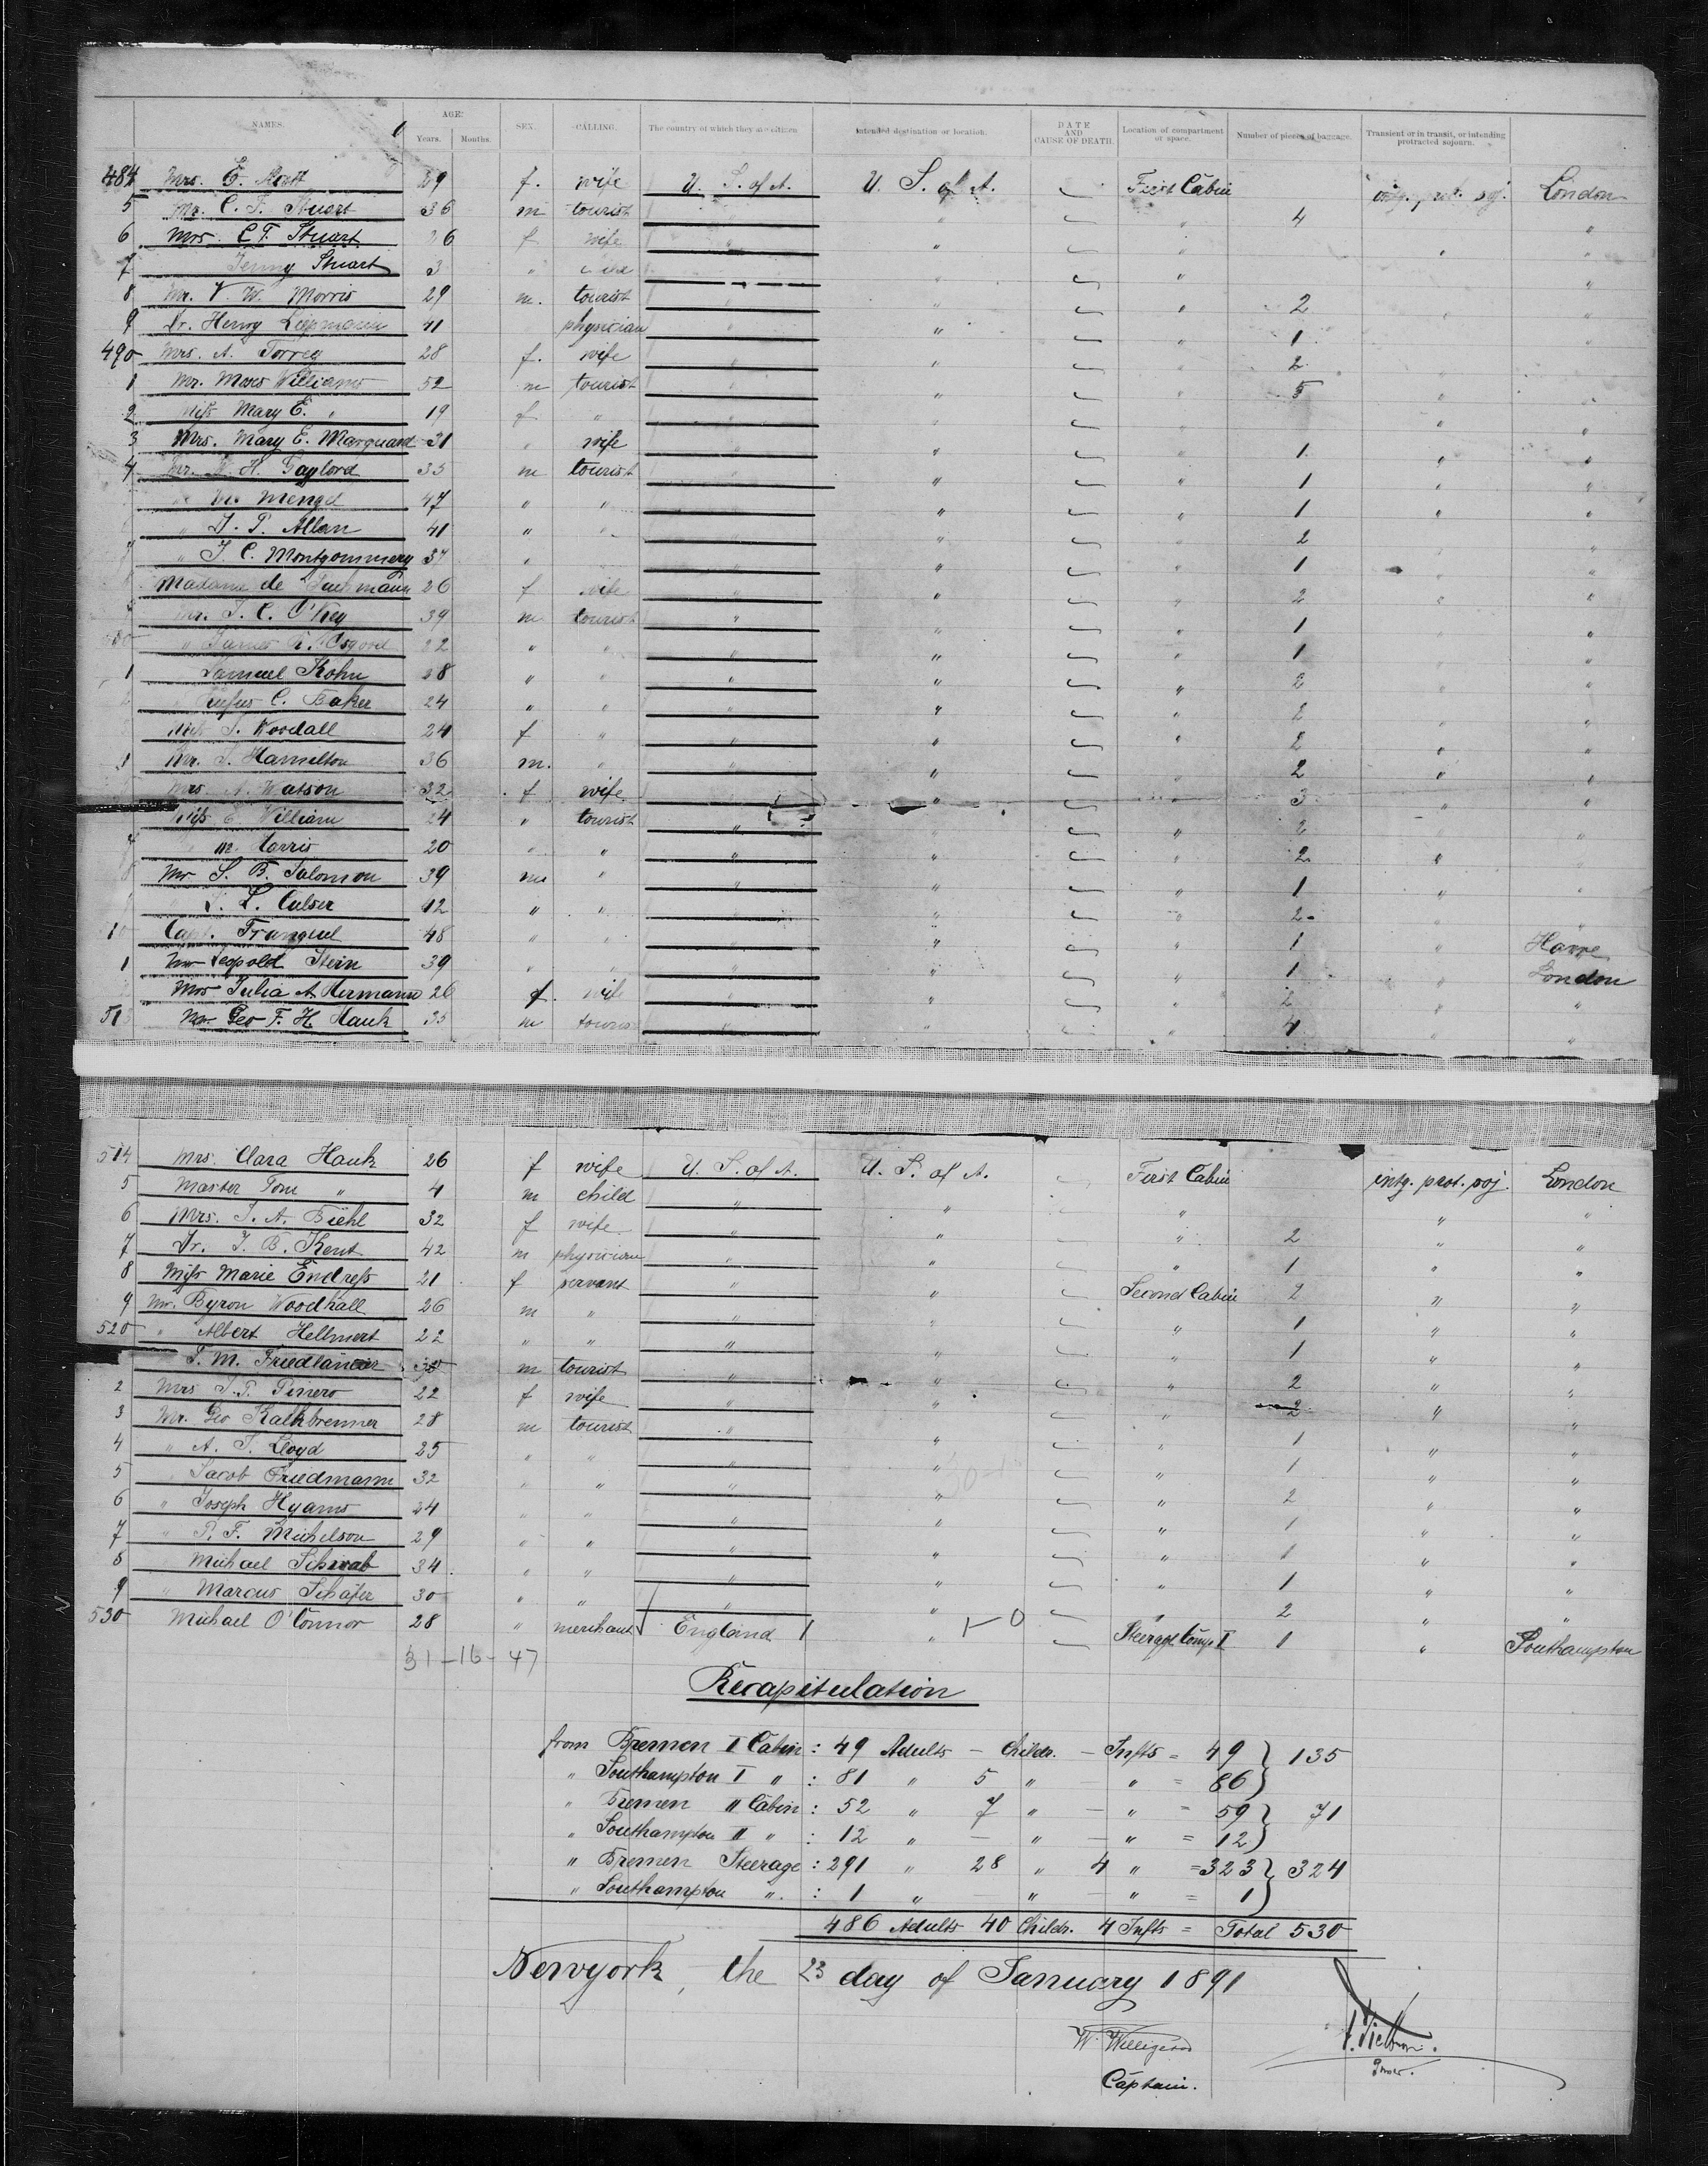 NAMES. AGE: Years. Months. SEX. CALLING. The country of which they are citizen Intended destination or location. DATE AND CAUSE OF DEATH. Location of compartment of space. Number of pieces of baggage. Transient or in transit, or intending protracted sojourn.
484 Mrs. E. 29 f. wife U. S. of A. U. S. of A. First Cabin London
5 Mr. C. F. Stuart 36 m tourist " " 4 "
6 Mrs. C F. Stuart 26 f wife " " " " "
7 Jenny Stuart 3 " child " " "
8 Mr. V. W. Morris 29 m. tourist " " " 2 " "
9 Dr. Henry 41 physician " " " 1 "
490 Mrs. A. Torrey 28 f. wife " " " 2
1 Mr. Moses Williams 52 m tourist " " 5 " "
2 Miss Mary E. " 19 f " " " "
3 Mrs. Mary E. Marquand 31 " wife " " " 1 " "
4 Mr. H. Gaylord 35 m tourist " " 1 " "
Mengel 47 " " " " 1 " "
" J. P. Allan 41 " " " 2 "
7 " J. C. Montgommery 37 " " 1 "
Madame de 26 f wife " " " 2 " "
Mr. J. C. O'Key 39 m tourist " " " 1 "
" James R. Osgood 22 " " " " " 1 "
1 Samuel Kohn 38 " " " " " 2 "
Rufus C. Baker 24 " " " " " 2 "
Miss J. Woodall 24 f " " " " 2 " "
Mr. J. Hamelton 36 m. " " " " 2 " "
Mrs. A. Watson 32 f wife " " 3 " "
Miss E. William 24 " tourist " " " 2 "
7 " m. Harris 20 " " " " " 2 "
8 Mr S. B. Salomon 39 m " " " " 1 "
L. Culver 42 " " " " 2 "
10 Capt. Tranquel 48 " " " " 1 " Havre
1 Mr Leopold Stein 39 " " " " " 1 " London
Mrs Julia A Hermann 26 f. wife " " " 2 " "
513 Mr. Geo F. H. Hauk 35 m touris " " " 4 " "
514 Mrs. Clara Hauk 26 f wife U. S. of A. U. S. of A. First Cabin intg. prot. soj. London
5 Master Tom " 4 m child " " " " "
6 Mrs. J. A. Biehl 32 f wife " " " 2 " "
7 Dr. J. B. Kent 42 m physician " " " 1 " "
8 Miss Marie Endress 21 f servant " " Second Cabin 2 " "
9 Mr. Byron Woodhall 26 m " " " " 1 " "
520 " Albert Hellmert 22 " " " " " 1 " "
J. M. Friedlander 30 m tourist " " " 2 " "
2 Mrs J. P. Pinero 22 f wife " " " 2 " "
3 Mr. Geo Kalkbrenner 28 m tourist " " " 1 " "
4 " A. J. Lloyd 25 " " " " " 1 " "
5 Jacob Friedmann 32 " " " " " 2 " "
6 " Joseph Hyams 24 " " " " " 1 " "
7 " P. F. Michelson 29 " " " " " 1 " "
8 Michael Schwab 34 " " " " " 1 " "
9 " Marcus Schäfer 30 " " " " 2 " "
530 Michael O'Connor 28 " merchant England 1 " 1-0 Steerage Comp I 1 " Southampton
31-16-47
Recapitulation
from Bremen I Cabin : 49 Adults - Childr. - Infts = 49 } 135
" Southampton I " : 81 " 5 " - " = 86 }
" Bremen II Cabin : 52 " 7 " - " = 59 } 71
" Southampton II " : 12 " - " - " = 12 }
" Bremen Steerage : 291 " 28 " 4 " = 323 } 324
" Southampton " : 1 " - " - " = 1 }
486 Adults 40 Childr. 4 Infts = Total 530
Newyork, the 23 day of January 1891
W. Willigerod
Captain.